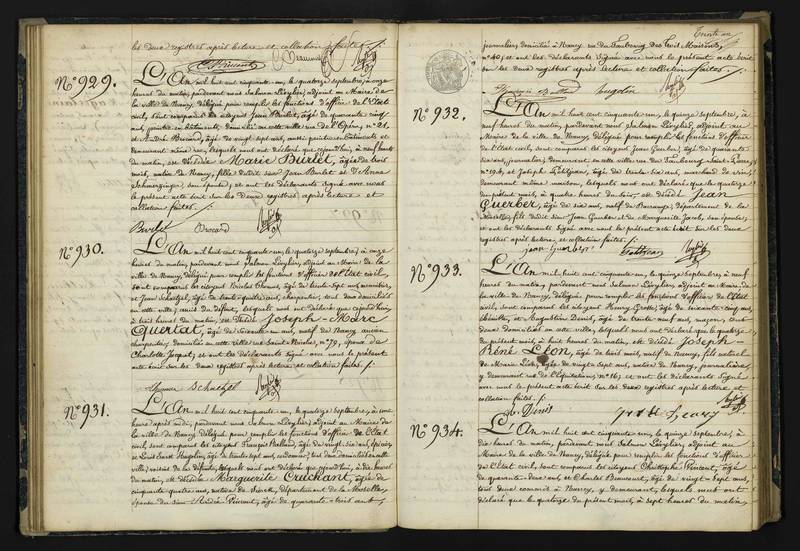 les deux registres après lecture et collection faites ./.
N° 929.
L'An mil huit cent cinquante-un, le quatorze septembre, à onze
heures du matin, pardevant nous Salmon Lévylier, adjoint au Maire de
la ville de Nancy, délégué pour remplir les fonctions d'officier de l'Etat
civil, sont comparus les citoyens Jean Burlet, âgé de quarante cinq
ans, peintre en bâtiments, domicilié en cette ville rue de l'Opéra, n° 21,
et André âgé de vingt sept ans, aussi peintre en bâtiments et
demeurant même rue, lesquels nous ont déclaré que aujourd'hui, à neuf heures
du matin, est décédée Marie Burlet, âgée de trois
mois, native de Nancy, fille dudit sieur Jean Burlet et de Anne
son épouse; et ont les déclarants signé avec nous
le présent acte écrit sur les deux registres, après lecture et
collection faites ./.
N° 930.
L'An mil huit cent cinquante-un, le quatorze septembre, à onze
heures du matin, pardevant nous Salmon Lévylier, adjoint au Maire de la
ville de Nancy, délégué pour remplir les fonctions d'officier de l'Etat civil,
sont comparus les citoyens Nicolas âgé de trente sept ans, menuisier,
et Jean Schatzel, âgé de trente quatre ans, charpentier, tous deux domiciliés
en cette ville; amis du défunt, lesquels nous ont déclaré que aujourd'hui,
à trois heures du matin, est décédé Joseph-Marc
Quertat, âgé de soixante-un ans, natif de Nancy, ancien
charpentier, domicilié en cette ville rue Saint-Nicolas, n° 79, époux de
Charlotte Jacquot; et ont les déclarants signé avec nous le présent
acte écrit sur les deux registres après lecture et collection faites ./.
Schatzel
N° 931.
L'An mil huit cent cinquante-un, le quatorze septembre, à une
heure après midi, pardevant nous Salmon Lévylier, adjoint au Maire de
la ville de Nancy, délégué pour remplir les fonctions d'officier de l'Etat
civil, sont comparus les citoyens François âgé de vingt-six ans, épicier,
et Louis Hugolin, âgé de trente sept ans, cordonnier, tous deux domiciliés en cette
ville; voisins de la défunte, lesquels nous ont déclaré que aujourd'hui, à dix heures
du matin, est décédée Marguerite Cruchant, âgée de
cinquante quatre ans, native de Sierck, département de la Moselle,
épouse du sieur âgé de quarante-trois ans,
journalier, domicilié à Nancy rue du Faubourg des Trois Maisons,
n° 40; et ont les déclarants signé avec nous le présent acte écrit
sur les deux registres après lecture et collection faites ./.
hugolin
N° 932.
L'An mil huit cent cinquante-un, le quinze septembre, à
neuf heures du matin, pardevant nous Salmon Lévylier, adjoint au
Maire de la ville de Nancy, délégué pour remplir les fonctions d'officier
de l'Etat civil, sont comparus les citoyens Jean Querber, âgé de quarante
six ans, journalier, demeurant en cette ville rue du Faubourg Saint-Pierre,
et Joseph âgé de trente-six ans, marchand de vin,
demeurant même maison, lesquels nous ont déclaré que le quatorze
du présent mois, à quatre heures du soir, est décédé Jean
Querber, âgé de six ans, natif de département de la
Moselle, fils dudit sieur Jean Querber et de Marguerite Jacob, son épouse;
et ont les déclarants signé avec nous le présent acte écrit sur les deux
registres après lecture et collection faites ./.
N° 933.
L'An mil huit cent cinquante-un, le quinze septembre, à neuf
heures du matin, pardevant nous Salmon Lévylier, adjoint au Maire de
la ville de Nancy, délégué pour remplir les fonctions d'officier de l'Etat
civil, sont comparus les citoyens Henry âgé de soixante-cinq ans,
et Augustin Denis, âgé de trente-neuf ans, maçon, tous
deux domiciliés en cette ville, lesquels nous ont déclaré que le quatorze
du présent mois, à huit heures du matin, est décédé Joseph
René Léon, âgé de trois mois, natif de Nancy, fils naturel
de Marie Léon, âgée de vingt sept ans, native de Nancy, journalière,
y demeurant rue de l'Equitation, n° 16; et ont les déclarants signé
avec nous le présent acte écrit sur les deux registres, après lecture et
collection faites ./.
Denis
N° 934.
L'An mil huit cent cinquante-un, le quinze septembre, à
dix heures du matin, pardevant nous Salmon Lévylier, adjoint au
Maire de la ville de Nancy, délégué pour remplir les fonctions d'officier
de l'Etat civil, sont comparus les citoyens Christophe âgé
de quarante-deux ans, et Charles Beaucourt, âgé de vingt-sept ans,
tous deux à Nancy, y demeurant, lesquels nous ont
déclaré que le quatorze du présent mois, à sept heures du matin,